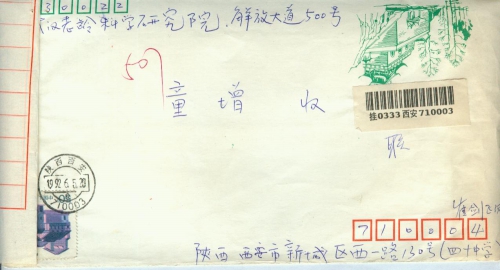 30022
科学研究院，解放大道500号
507
童增收
挂0333西安710003
1992.6.5.20
710003
710004
陕西西安市新城区西一路130号(四十中学